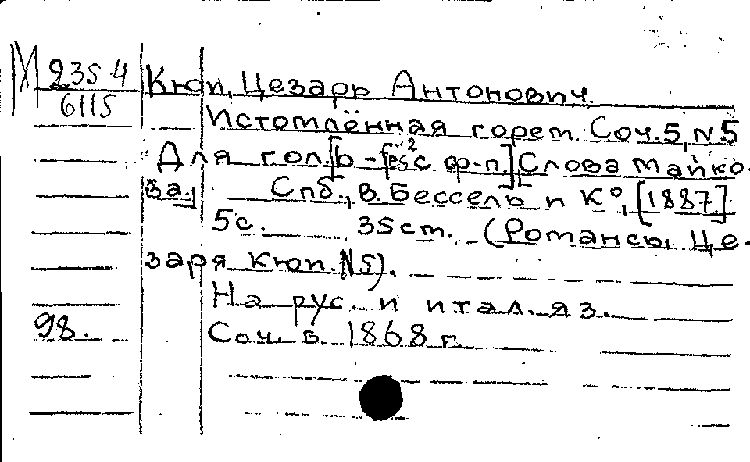 М 235-4
6115
Кюи, Цезарь Антонович.
Истомлённая горем. Соч. 5, N5
Для гол. [b - fes² с ф-п.] [Слова Майко-
ва.] Спб., В. Бессель и К°, [1887]
5 с. 35 cm. (Романсы Це-
заря Кюи. N5).
На рус. и итал. яз.
98. Соч. в 1868 г.